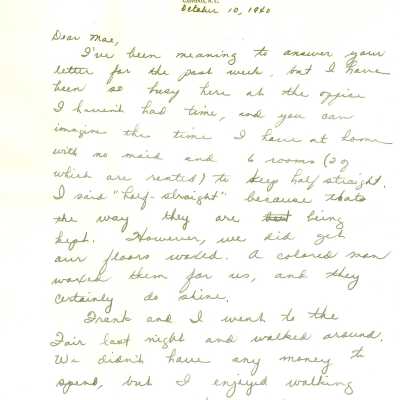 October 10, 1940
Dear Mae,
I've been meaning to answer your
letter for the past week, but I have
been so busy here at the office
I haven't had time, and you can
imagine the time I have at home
with no maid and 6 rooms (2 of
which are rented) to keep half straight.
I said "half-straight" because thats
the way they are but being
kept. However, we did get
our floors waxed. A colored man
waxed them for us, and they
certainly do shine.
Frank and I went to the
Fair last night and walked around.
We didn't have any money to
spend, but I enjoyed walking